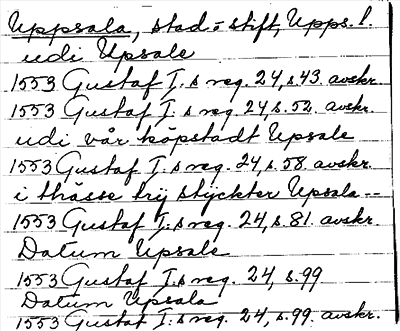 Uppsala, stad o stift, Upps. l.
udi Upsale
1553 Gustaf I.s reg. 24, s. 43. avskr.
1553 Gustaf I.s reg. 24, s. 52. avskr.
udi vår köpstadt Upsale
1553 Gustaf I.s reg. 24, s. 58. avskr.
i thässe trij stÿckter Upsala --
1553 Gustaf I.s reg. 24, s. 81. avskr.
Datum Upsale
1553 Gustaf I.s reg. 24, s. 99
Datum Upsala
1553 Gustaf I.s reg. 24, s. 99. avskr.